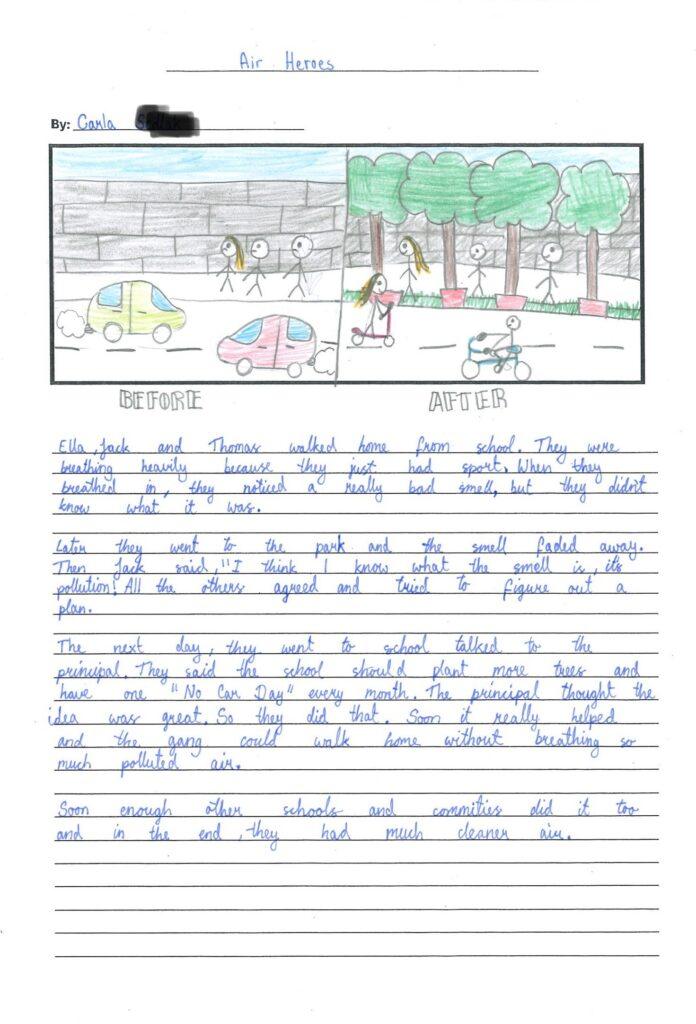 Air Heroes
By: Carla
BEFORE
AFTER
Ella, Jack and Thomas walked home from school. They were
breathing heavily because they just had sport. When they
breathed in, they noticed a really bad smell, but they didn't
know what it was.
Later they went to the park and the smell faded away.
Then Jack said, "I think I know what the smell is, it's
pollution! All the others agreed and tried to figure out a
plan.
The next day, they went to school talked to the
principal. They said the school should plant more trees and
have one "No Car Day" every month. The principal thought the
idea was great. So they did that. Soon it really helped
and the gang could walk home without breathing so
much polluted air.
Soon enough other schools and commities did it too
and in the end, they had much cleaner air.